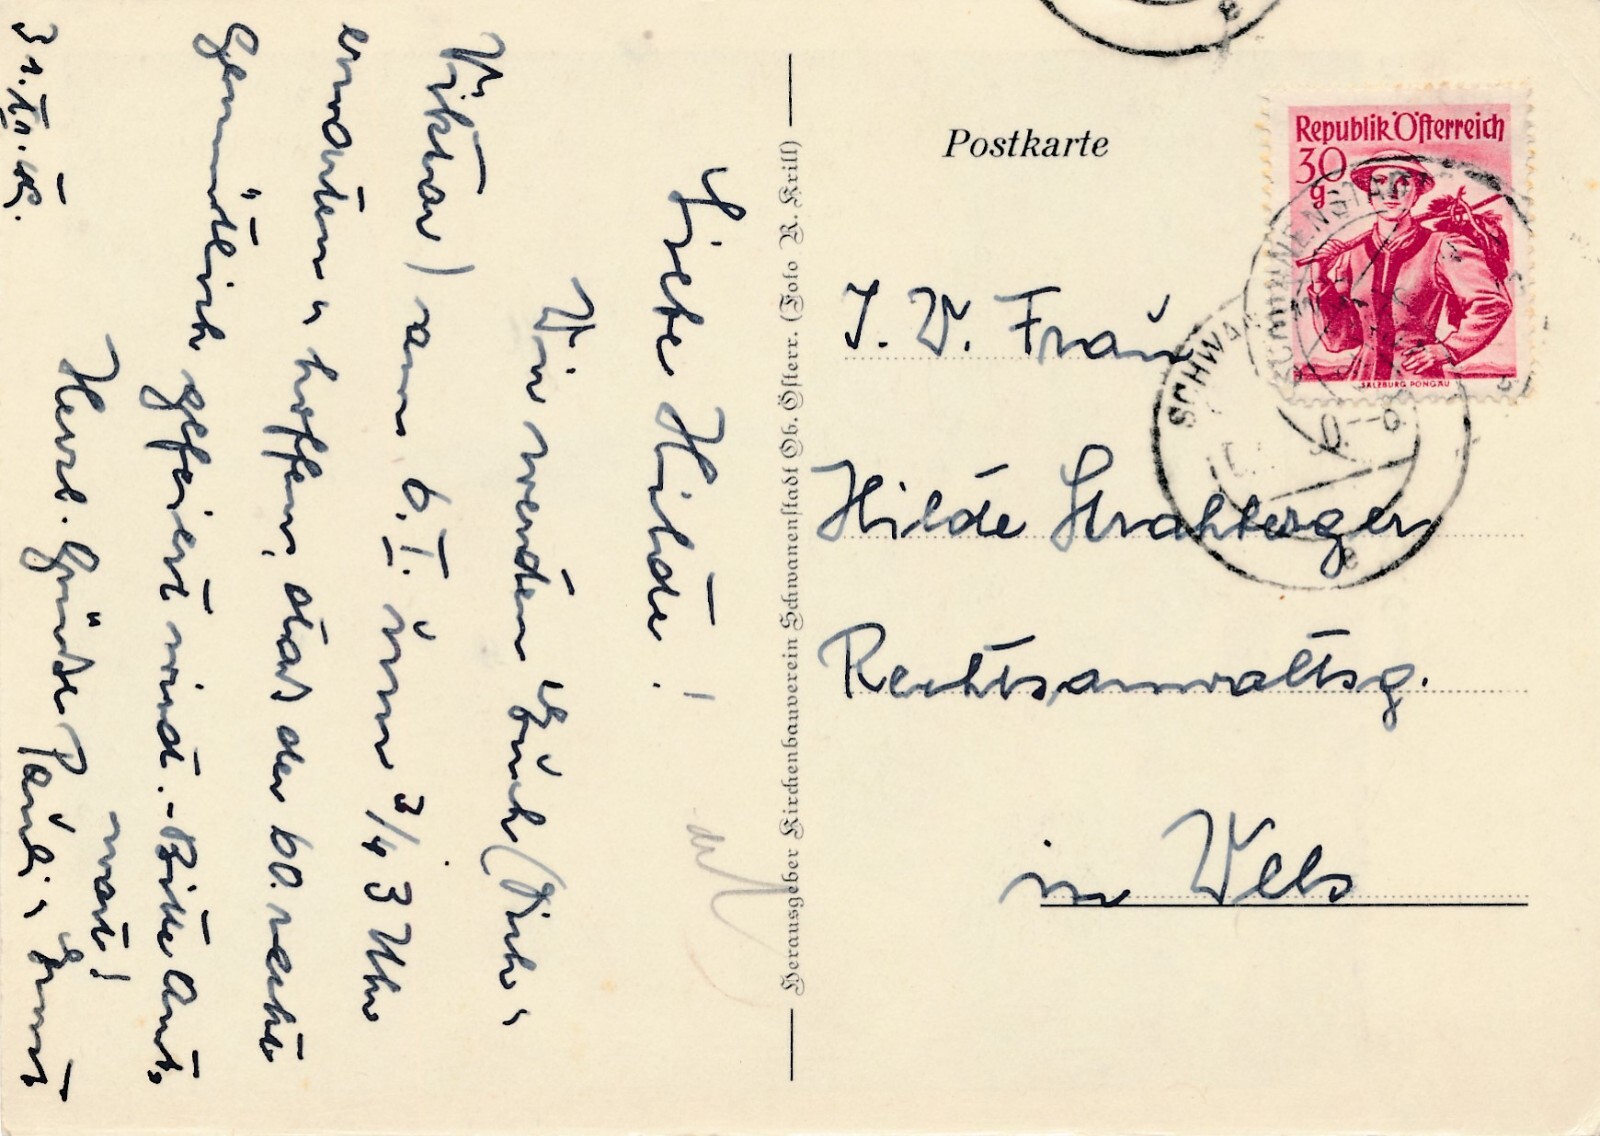 Liebe Hilde!
Wir werden Euch (Dich u
Viktor) am 6. I. um 3/4 3 Uhr
erwarten u hoffen, daß der 60. recht
gemütlich gefeiert wird. - Bitte Ant-
wort!
Herzl. Grüße Pauli u Ernst
31. XII.
Herausgeber Kirchenbauverein Schwanenstadt Ob. Österr. (Foto R. Krill)
Postkarte
Republik Österreich
30
g
SALZBURG PONGAU
SCHWANENSTADT
SCHWAN
I. W. Frau
Hilde
Rechtsanwaltsg.
in Wels